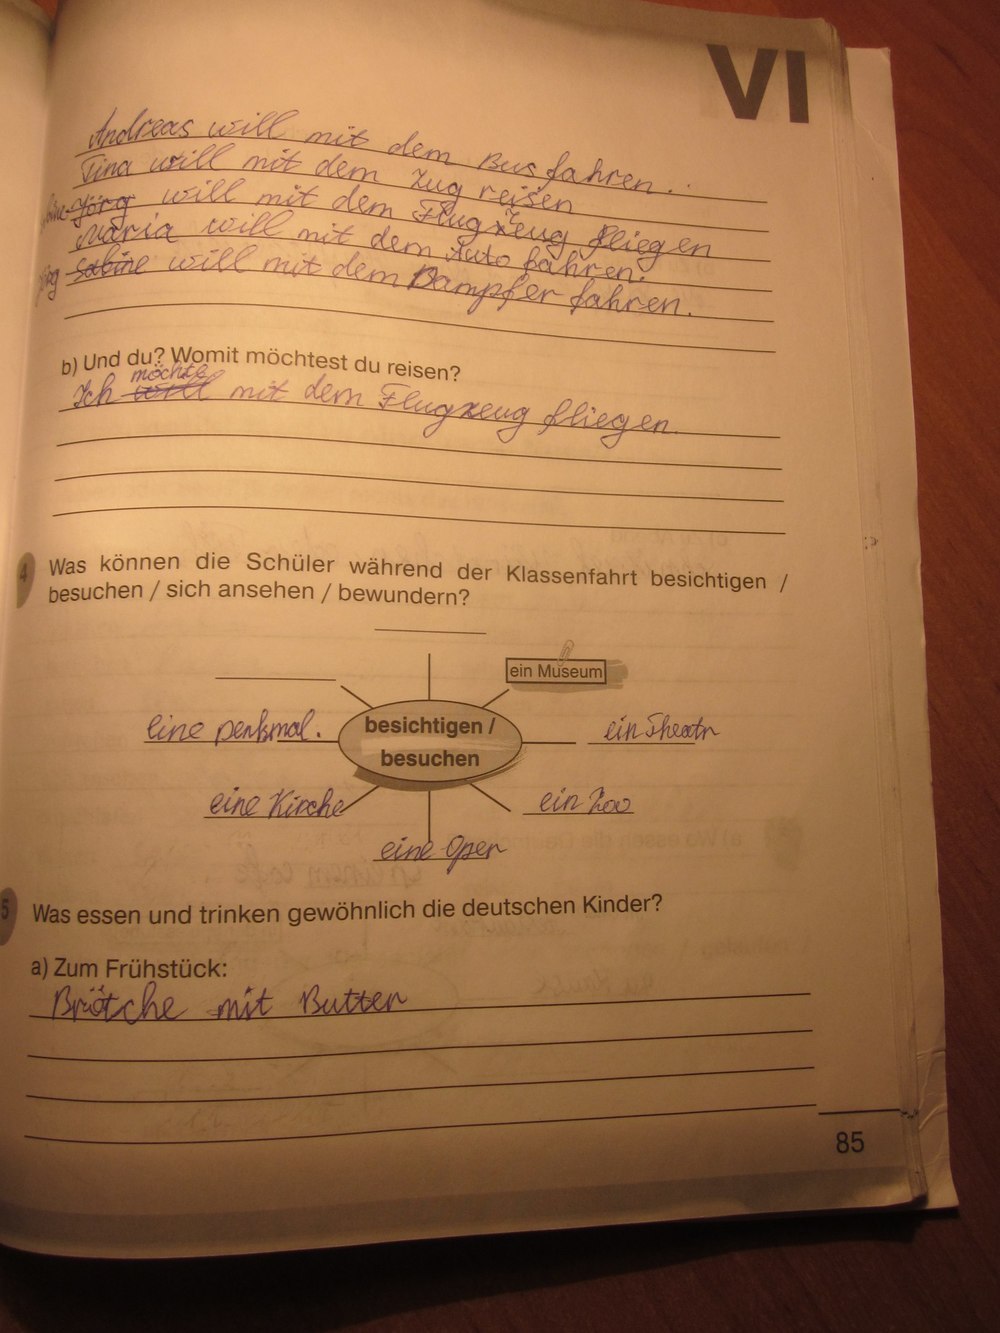 VI
Andreas will mit dem Bus fahren..
Tina will mit dem Zug reisen
Jörg will mit dem Flugzeug fliegen
Maria will mit dem Auto fahren.
Jörg Sabine will mit dem Dampfer fahren.
b) Und du? Womit möchtest du reisen?
möchte
Ich will mit dem Flugzeug fliegen.
4
Was können die Schüler während der Klassenfahrt besichtigen /
besuchen / sich ansehen / bewundern?
ein Museum
eine Denkmal.
besichtigen /
besuchen
ein Theatr
eine Kirche
ein Zoo
eine Oper
5
Was essen und trinken gewöhnlich die deutschen Kinder?
a) Zum Frühstück:
Brötche mit Butter
85